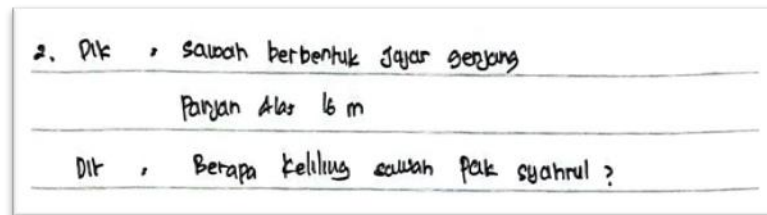 2. Dik , sawah berbentuk Jajar genjang
Panjan Alas 16 m
Dit , Berapa keliling sawah pak syahrul ?